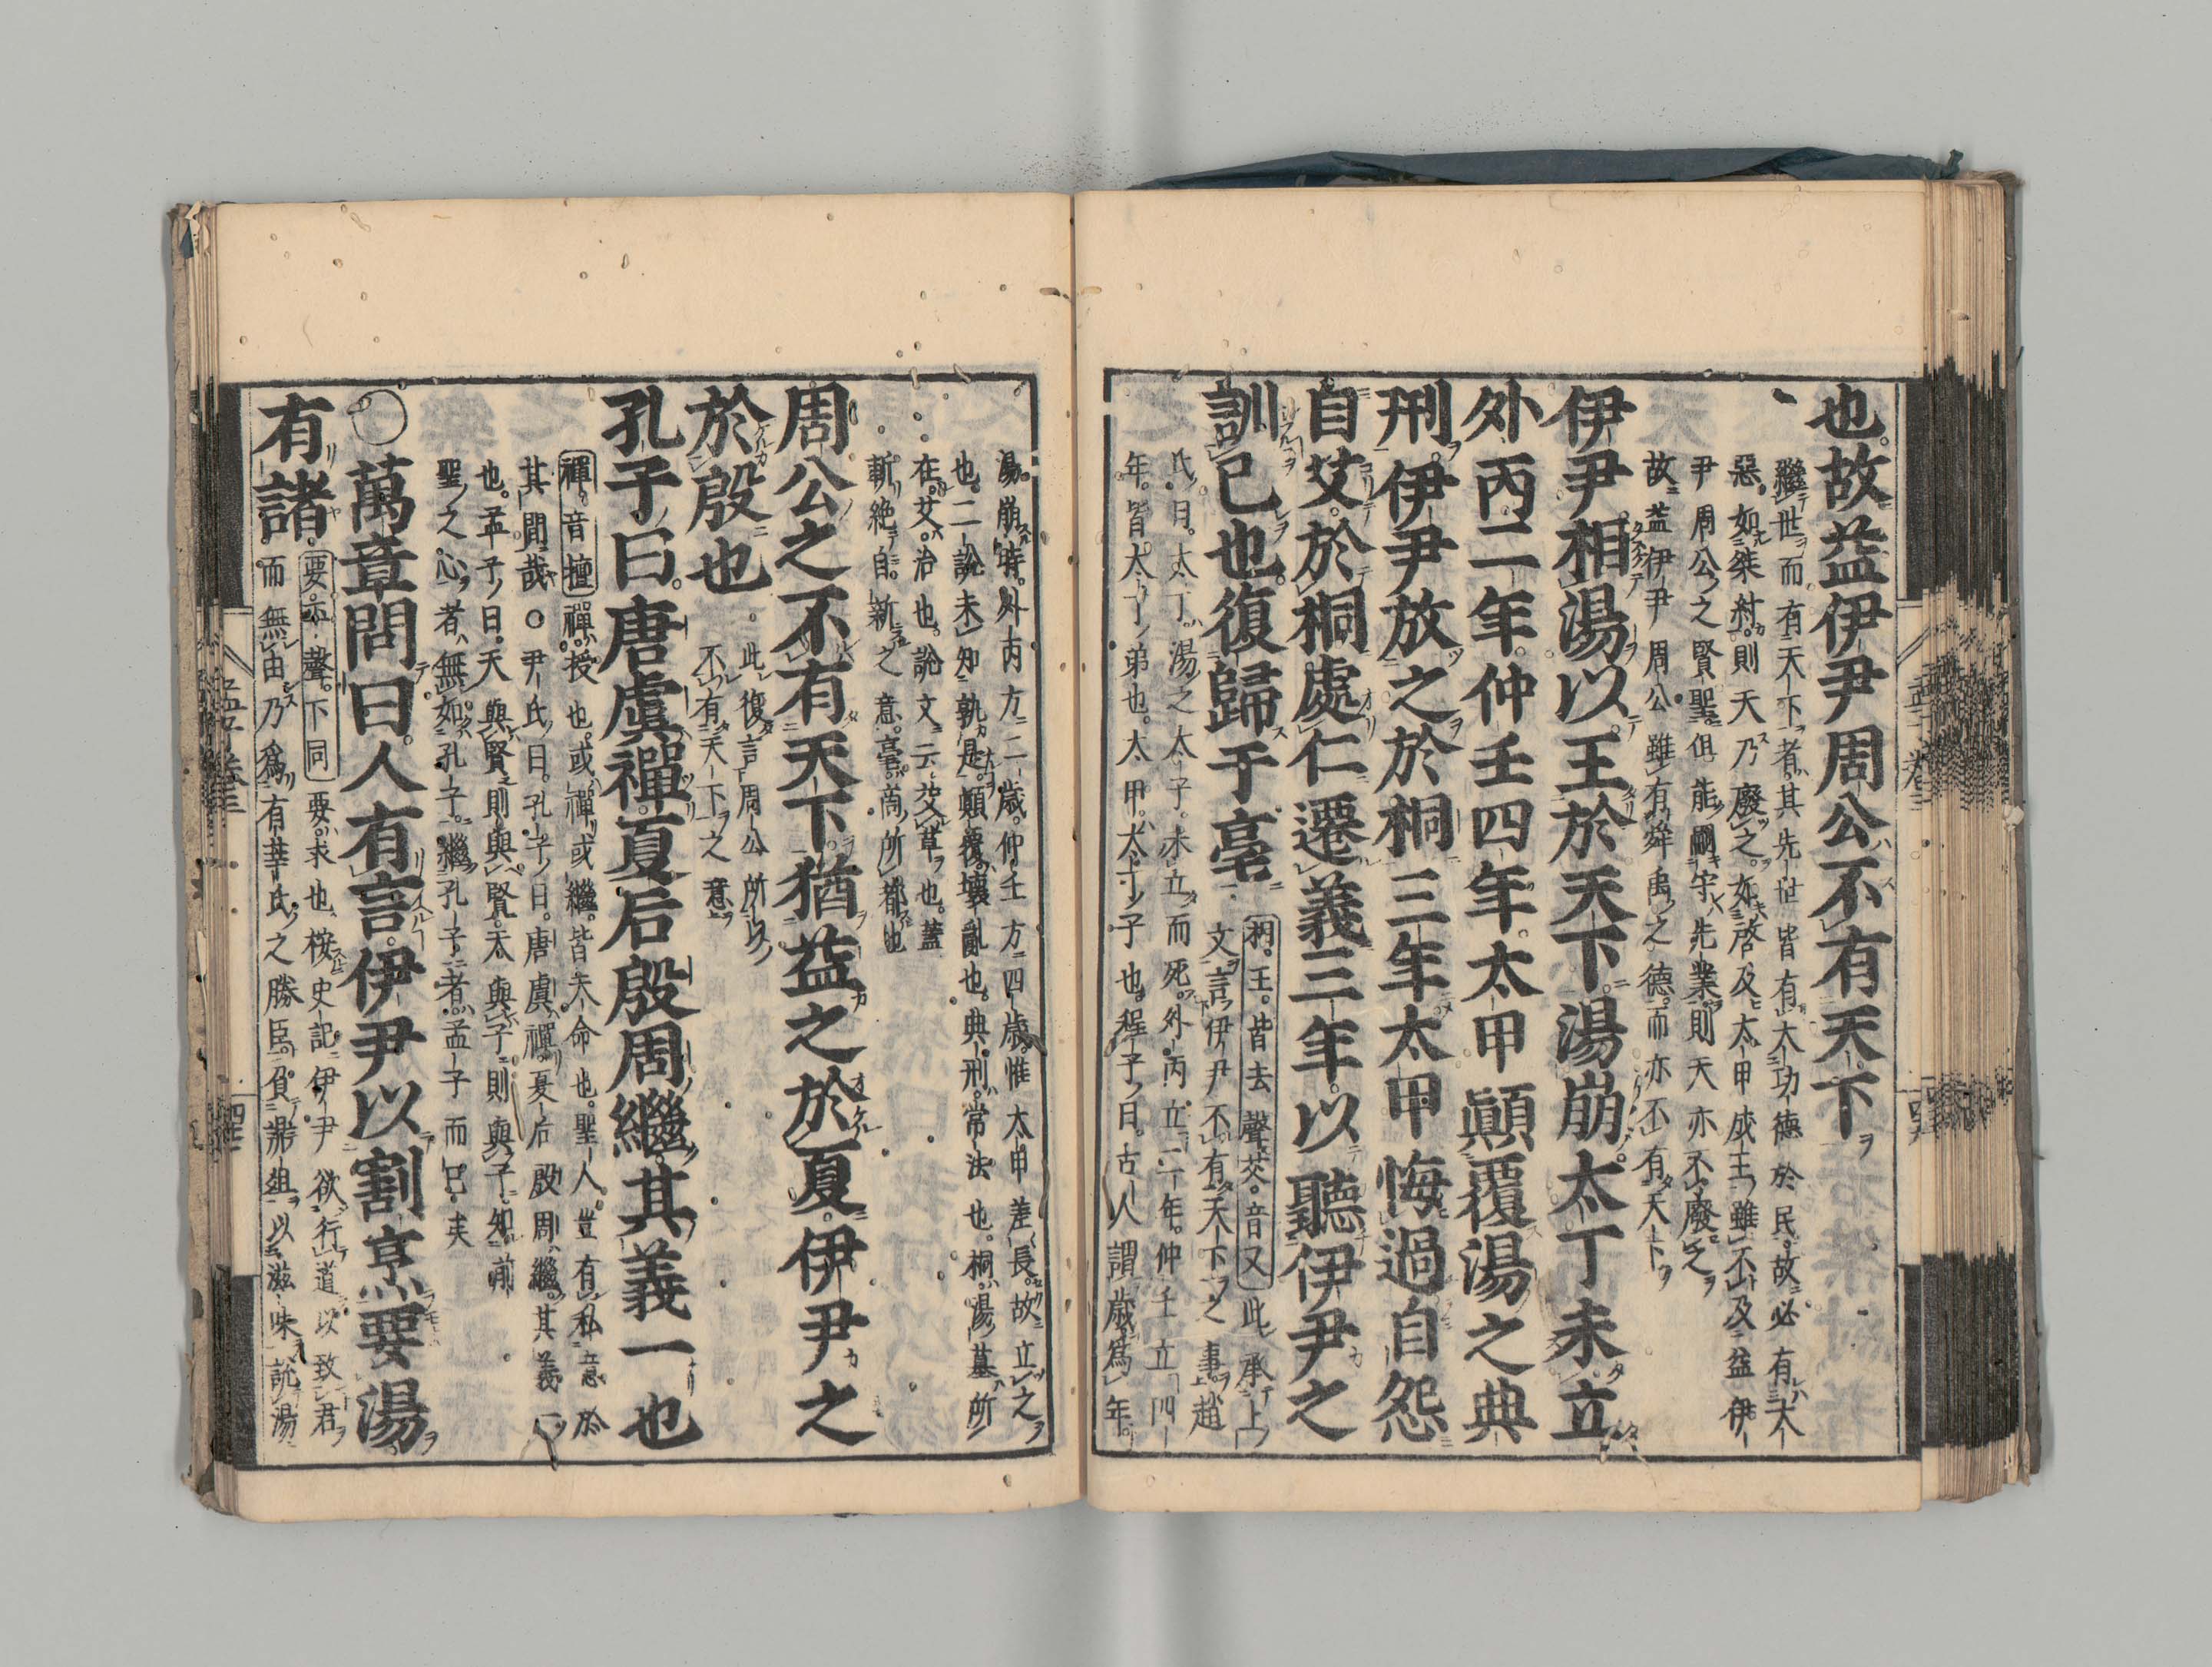 也故益伊尹周公不有天下
繼世而有天下者其先世皆有大功德於民故必有大
惡如桀紂則天乃廢之如啓及太甲成王雖不及益伊
尹周公之賢聖但能嗣守先業則天亦不廢之
故益伊尹周公雖有舜禹之德而亦不有天下
伊尹相湯以王於天下湯崩太丁未立
外丙二年仲壬四年太甲顚覆湯之典
刑伊尹放之於桐三年太甲悔過自怨
自艾於桐處仁遷義三年以聽伊尹之
訓己也復歸于亳
相王皆去聲艾音又此承上
文言伊尹不有天下之事趙
氏曰太丁湯之太子未立而死外丙立二年仲壬立四
年皆太丁弟也太甲太丁子也程子曰古人謂歲爲年
湯崩時外丙方二歲仲壬方四歲惟太甲差長故立之
也二說未知孰是顚覆壞亂也典刑常法也桐湯墓所
在艾治也說文云芟草也蓋
斬絕自新之意亳商所都也
周公之不有天下猶益之於夏伊尹之
於殷也
此復言周公所以
不有天下之意
孔子曰唐虞禪夏后殷周繼其義一也
禪音擅禪授也或禪或繼皆天命也聖人豈有私意於
其閒哉○尹氏曰孔子曰唐虞禪夏后殷周繼其義一
也孟子曰天與賢則與賢天與子則與子知前
聖之心者無如孔子繼孔子者孟子而已矣
○萬章問曰人有言伊尹以割烹要湯
有諸
要平聲下同要求也按史記伊尹欲行道以致君
而無由乃爲有莘氏之媵臣負鼎俎以滋味說湯
孟子卷三
四五